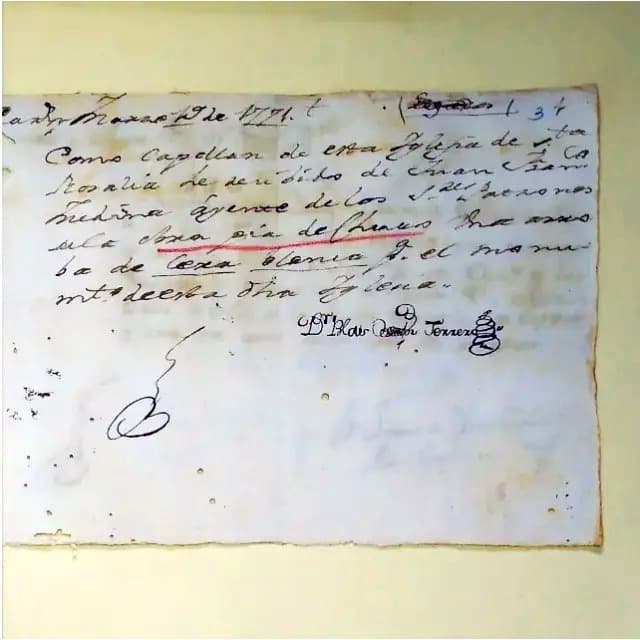 Marzo 19 de 1771. 3
Como Capellan de esta Yglesia de Sta
Rosalia he recibido de Juan Franco
Medina Agente de los Sres Patronos
de la Obra pia de Chuao una arro
ba de Cera blanca pa. el monu
mto. de esta dha Yglesia.
Br. Blas Terrero